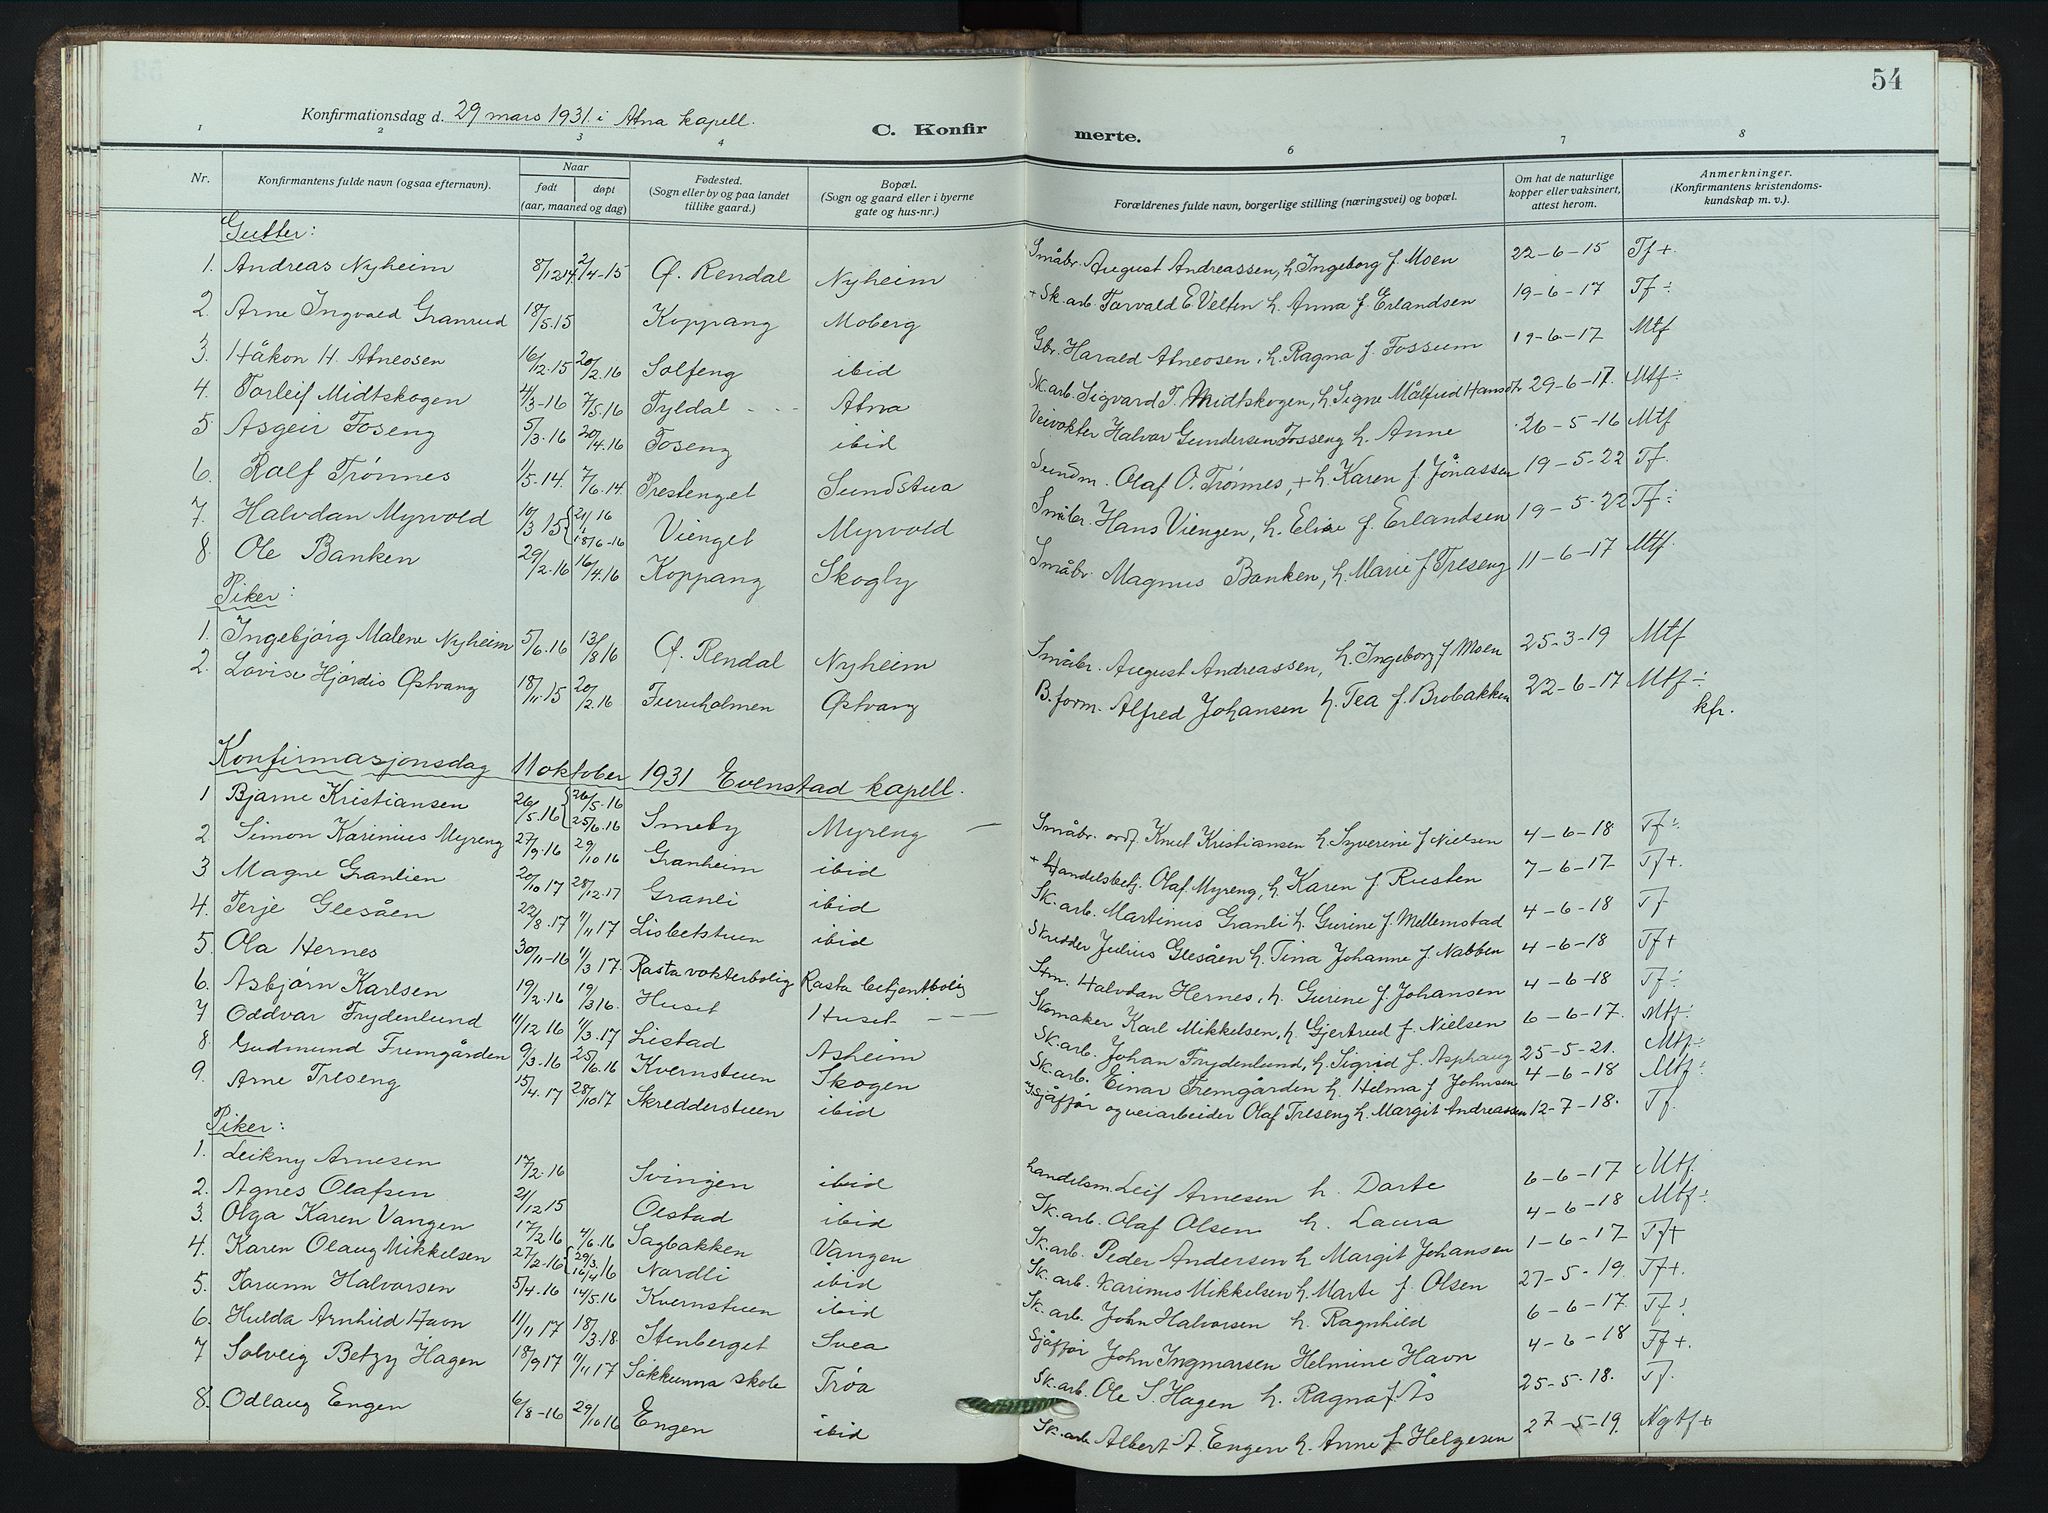 54
Konfirmationsdag d. 29 mars 1931. i Atna kapell.
C. Konfirmerte.
1 2 3 4 6 7 8
Nr. Konfirmantens fulde navn (ogsaa efternavn). Naar født døpt (aar, maaned og dag) Fødested. (Sogn eller by og paa landet tillike gaard.) Bopæl. (Sogn og gaard eller i byerne gate og hus-nr.) Forældrenes fulde navn, borgerlige stilling (næringsvei) og bopæl. Om hat de naturlige kopper eller vaksinert, attest herom. Anmerkninger. (Konfirmantens kristendoms-kundskap m. v.).
Gutter:
1. Andreas Nyheim 8/12 14. 2/4-15 Ø. Rendal Nyheim Småbr. August Andreassen, h. Ingeborg f. Moen 22-6-15 Tf+
2. Arne Ingvald Granrud 18/5.15 Koppang Moberg + Sk.arb. Torvald E. Velten h. Anna f. Erlandsen 19-6-17 Tf÷
3. Håkon H. Atneosen 16/12.15 20/2.16 Solfeng ibid Gbr. Harald Atneosen, h. Ragna f. Fossum 19-6-17 Mtf
4 Torleif Midtskogen 4/3-16 7/5.16 Tyldal - - - Atna Sk.arb. Sigvard T. Midtskogen, h. Signe Målfrid Hansdt 29-6-17. Mtf÷
5 Asgeir Foseng 5/3.16 20/4.16 Foseng ibid Veivokter Halvor Gundersen Fosseng h. Anne 26-5-16 Mtf
6. Rolf Trønnes 1/5-14. 7/6.14. Prestenget Sundstua Sundm. Olaf O. Trønnes, + h. Karen f. Jónassen 19-5-22 Tf.
7. Halvdan Myrvold 10/3 15 { 21/1 16 18/6-16 Vienget Myrvold Småbr. Hans Viengen, h. Elise f. Erlandsen 19-5-22 Tf÷
8. Ole Banken 29/2.16 16/4.16 Koppang Skogly Småbr. Magnus Banken, h. Marie f Treseng 11-6-17 Mtf.
Piker:
1. Ingebjørg Malene Nyheim 5/6.16 13/8 16 Ø. Rendal Nyheim Småbr. August Andreassen, h. Ingeborg f Moen 25-3-19 Mtf
2. Lovise Hjørdis Østvang 18/11 15 20/2.16 Furuholmen Østvang B.form. Alfred Johansen h. Tea f. Brobakken 22-6-17 Mtf÷
kfr.
Konfirmasjonsdag 11 oktober 1931 Evenstad kapell.
1 Bjarne Kristiansen 26/5.16 { 26/5.16 25/6.16 Smeby Myreng — Småbr. ordf. Knut Kristiansen h. Syverine f Nielsen 4-6-18 Tf÷
2 Simon Karinius Myreng 27/9.16 29/10 16 Granheim ibid + Handelsbetj. Olaf Myreng, h. Karen f. Rusten 7-6-17- Tf+.
3 Magne Granlien 20/10 17 28/12.17 Granli ibid Sk.arb. Martinus Granli h. Gurine f Mellemstad 4-6-18 Tf
4. Terje Glesåen 22/8.17 1/11 17 Lisbetstuen ibid Skredder Julius Glesåen h. Tina Johanne f. Nabben 4-6-18 Tf+
5. Ola Hernes 30/11-16 11/3 17. Rasta vokterbolig Rasta betjentbolig Stm. Halvdan Hernes, h. Gurine f. Johansen 4-6-18 Tf÷
6. Asbjørn Karlsen 19/2.16 19/3 16. Huset Huset - - - Skomaker Karl Mikkelsen, h. Gjertrud f. Nielsen 6-6-17. Mtf÷
7. Oddvar Frydenlund 11/12 16 11/3.17 Listad Åsheim Sk.arb. Johan Frydenlund, h. Sigrid f. Asphaug 25-5-21. Mtf÷
8. Gudmund Fremgården 9/3.16 25/6.16 Kvernstuen Skogen Sk.arb. Einar Fremgården h. Helma f Johnsen 4-6-18 Mtf÷
9. Arne Treseng 15/4.17 28/10 17 Skredderstuen ibid Sjåffør og veiarbeider Olaf Treseng h. Margit Andreassen 12-7-18. Tf.
Piker:
1. Leikny Arnesen 17/2.16 Svingen ibid handelsm. Leif Arnesen h. Dorte 6-6-17 Mtf
2. Agnes Olafsen 21/12 15 Olstad ibid Sk.arb. Olaf Olsen h. Laura 4-6-18 Mtf÷
3. Olga Karen Vangen 17/2 16 4/6.16 Sagbakken Vangen Sk.arb. Peder Andersen h Margit Johansen 1-6-17 Tf+
4. Karen Olaug Mikkelsen 27/2-16 { 29/3. 16/4 16 Nordli ibid Sk.arb. Karinus Mikkelsen h. Marte f. Olsen 27-5-19. Tf+.
5. Torunn Halvorsen 5/4.16 14/5.16 Kvernstuen ibid Sk.arb. John Halvorsen h. Ragnhild 6-6-17. Tf÷
6. Hulda Arnhild Havn 11/11 17 18/3.18. Stenberget Svea Sjåffør John Ingmarsen Helmine Havn 4-6-18 Tf+.
7 Solveig Betzy Hagen 18/9 17 11/11 17 Søkkunna skole Trøa Sk.arb. Ole S. Hagen h. Ragna f. Ås 25-5-18. Tf.
8. Odlaug Engen 6/8-16 29/10 16 Engen ibid Sk.arb. Albert A. Engen h. Anne f Helgesen 27-5-19. Ngtf+